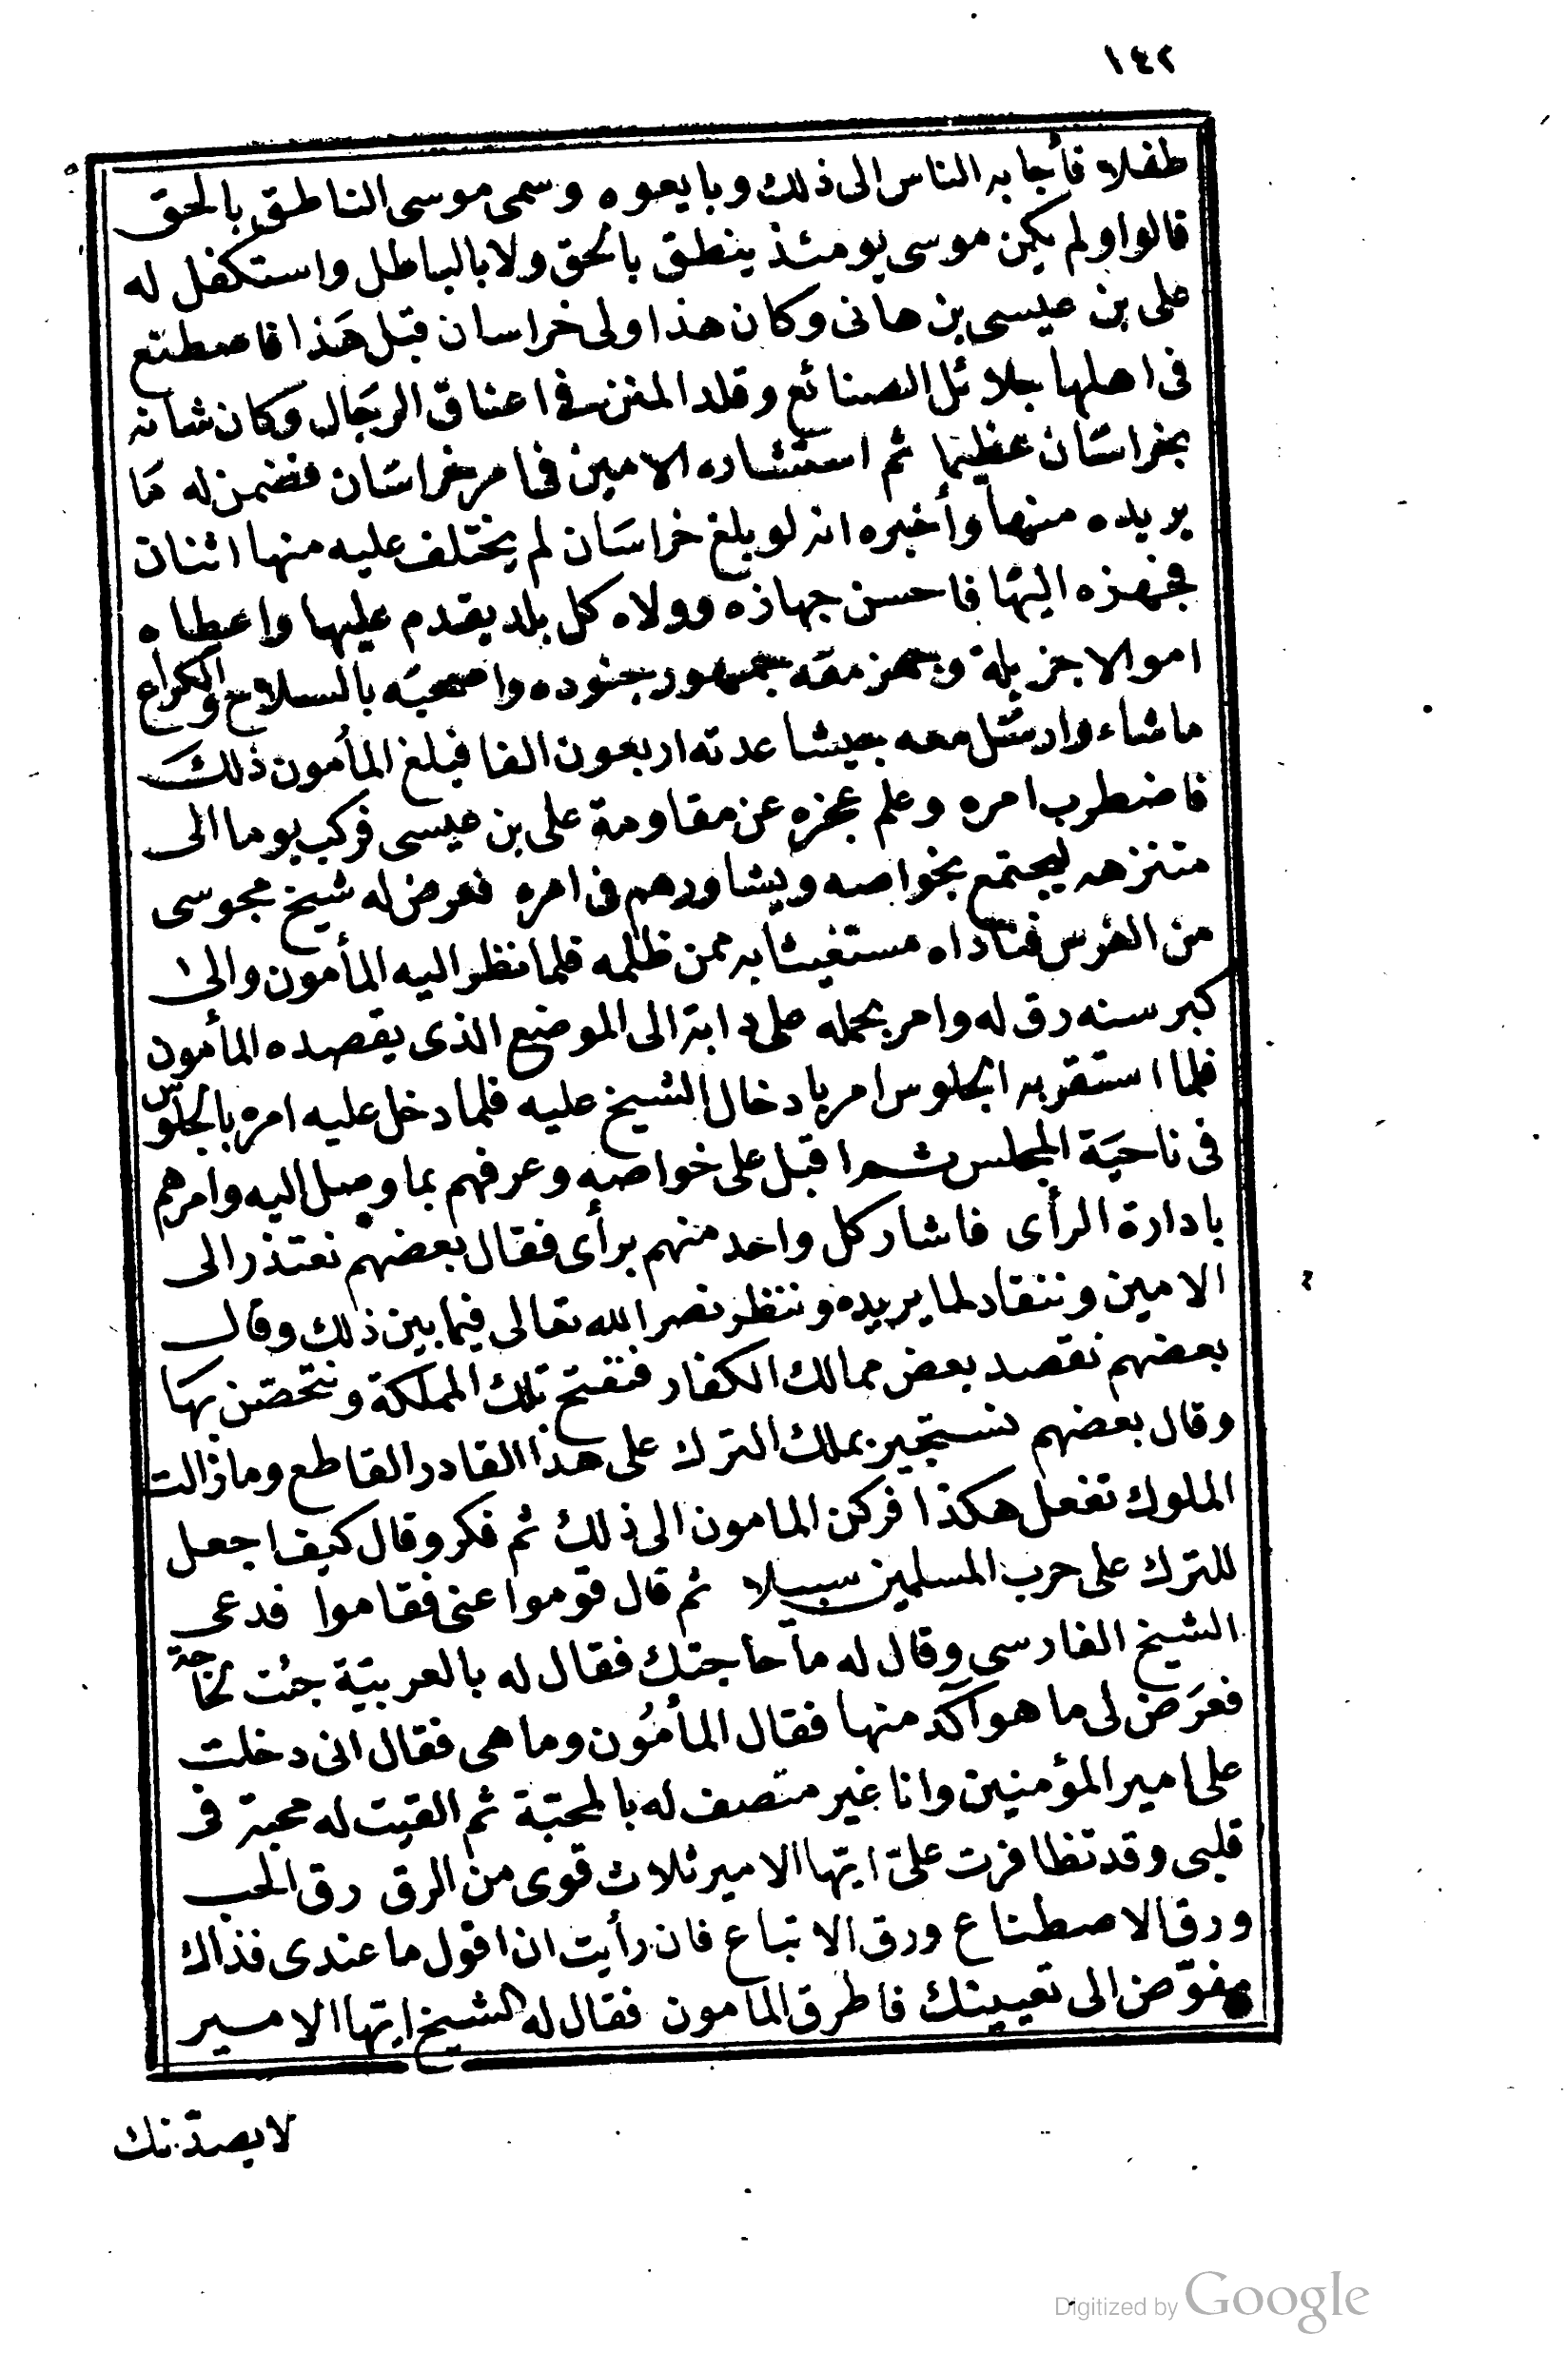 ١٤٢
طفلا فأجابه الناس الى ذلك وبايعوه وسمى موسى الناطق بالحق
قالوا ولم يكن موسى يومئذ ينطق بالحق ولا بالباطل واستكفل له
على بن عيسى بن هانى وكان هذا ولى خراسان قبل هَذا فاصطنع
فى اهلها جلائل الصنائع وقلد المنن فى اعناق الرجَال وكان شانه
بخراسَان عظيما ثم استشاره الامين فى امر خراسَان فضمن له مَا
يريده منها وأخبره انه لو بلغ خراسَان لم يختلف عليه منها اثنان
فجهزه اليهَا فاحسن جهازه وولاه كل بلد يقدم عليها واعطاه
اموالا جزيلة وجهز معَه جمهور جنوده واصحبَه بالسلاح والكراع
ماشاء وارسَل معه جيشا عدته اربعون الفا فبلغ المأمون ذلكَ
فاضطرب امره وعلم عجزه عن مقاومة على بن عيسى فركب يوما الى
متنزهه ليجتمع بخواصه ويشاورهم فى امره فعرض له شيخ مجوسى
من الفرس فناداه مستغيثا به ممن ظلمه فلما نظر اليه المأمون والى
كبر سنه رق له وامر بحمله على دابة الى الموضع الذى يقصده المأمون
فلما استقر به الجلوس امر بادخال الشيخ عليه فلما دخل عليه امره بالجلوس
فى ناحيَة المجلس ثم اقبل على خواصه وعرفهم بما وصل اليه وامرهم
بادارة الرأى فاشار كل واحد منهم برأى فقال بعضهم نعتذر الى
الامين وننقاد لما يريده وننتظر نصر الله تعالى فيما بين ذلك وقال
بعضهم نقصد بعض ممالك الكفار فنفتح تلك المملكة ونتحصّن بهَا
وقال بعضهم نستجير بملك الترك على هذا الغادر القاطع وما زالت
الملوك تفعل هكذا فركن المامون الى ذلك ثم فكر وقال كيف اجعل
للترك على حرب المسلمين سبيلا ثم قال قوموا عنى فقاموا فدعى
الشيخ الفارسى وقال له ما حاجتك فقال له بالعربيّة جئت لحاجة
فعرَض لى ما هو آكد منها فقال المأمُون وما هى فقال انى دخلت
على امير المؤمنين وانا غير متصف له بالمحبّة ثم القيت له محبة فى
قلبى وقد تظافرت علىّ ايّها الامير ثلاث قوى من الرق رق الحب
ورق الاصطناع ورق الاتباع فان رأيت ان اقول ما عندى فذاك
مفوّض الى تعيينك فاطرق المامون فقال له الشيخ ايّها الامير
لا يصدّنك
Digitized by Google